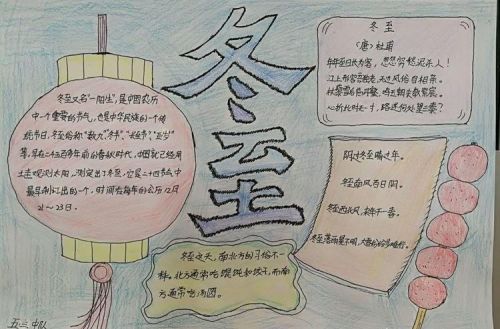 冬至
冬至又名“一阳生”,是中国农历
中一个重要的节气,也是中华民族的一个传
统节日,冬至俗称“数九”,“冬节”,“长至节”,“亚岁”
等,早在二千五百多年前的春秋时代,中国就已经用
土圭观测太阳,测定出了冬至,它是二十四节气中
最早制订出的一个,时间在每年的公历12月
21~23日.
冬至
(唐)杜甫
年年至日长为客,忽忽穷愁泥杀人!
江上形容吾独老,天边风俗自相亲。
杖藜雪后临丹壑,鸣玉朝来散紫宸。
心折此时无一寸,路迷何处望三秦?
阴过冬至晴过年。
冬至南风百日阴。
冬至西北风,来年干一春。
冬至落雨星不明,大雪纷纷步难行。
冬至之天,南北方的习俗不一
样。北方通常吃馄饨和饺子,而南
方通常吃汤圆。
五三中队